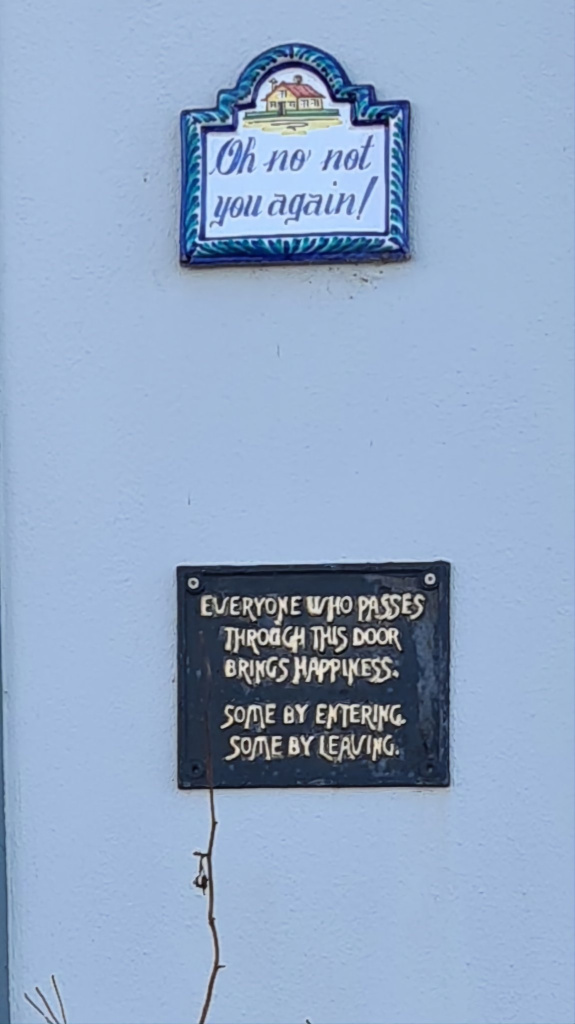 Oh no not
you again!
EVERYONE WHO PASSES
THROUGH THIS DOOR
BRINGS HAPPINESS.
SOME BY ENTERING.
SOME BY LEAVING.